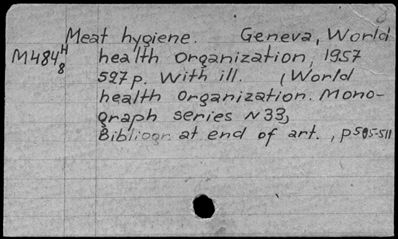 Meat hygiene. Geneva, World
M484H8 health organization, 1957
527 p. With ill. (World
health organization. Mono-
graph series N 33)
Bibliogr. at end of art., p 505-511